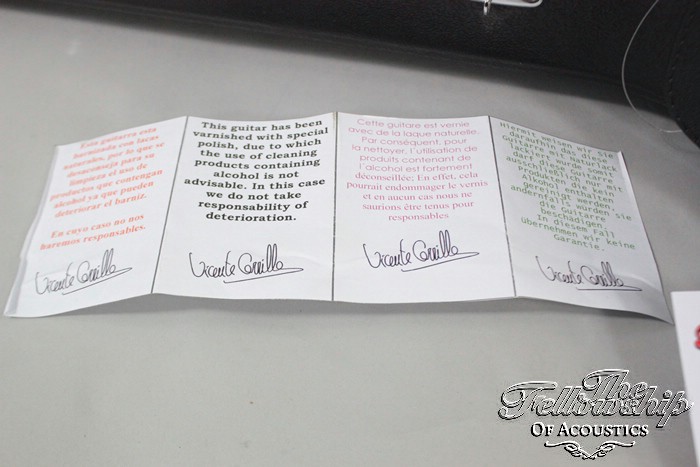 Esta guitarra esta
barnizada con lacas
naturales, por lo que se
desaconseja para su
limpieza el uso de
productos que contengan
alcohol ya que pueden
deteriorar el barniz.
En cuyo caso no nos
haremos responsables.
Vicente Carrillo
This guitar has been
varnished with special
polish, due to which
the use of cleaning
products containing
alcohol is not
advisable. In this case
we do not take
responsability of
deterioration.
Vicente Carrillo
Cette guitare est vernie
avec de la laque naturelle.
Par conséquent, pour
la nettoyer, l'utilisation de
produits contenant de
l'alcohol est fortement
déconseillée; En effet, cela
pourrait endommager le vernis
et en aucun cas nous ne
saurions être tenus pour
responsables
Vicente Carrillo
Hiermit weisen wir sie
daraufhin, dass diese
Guitarre
darf
ausschließlich nur mit
Produkten die kein
Alkohol enthalten
gereinigt werden
anderenfalls sie
die Guitarre
beschädigen.
In diesem Fall
übernehmen wir keine
Garantie.
Vicente Carrillo
The
Fellowship
OF ACOUSTICS